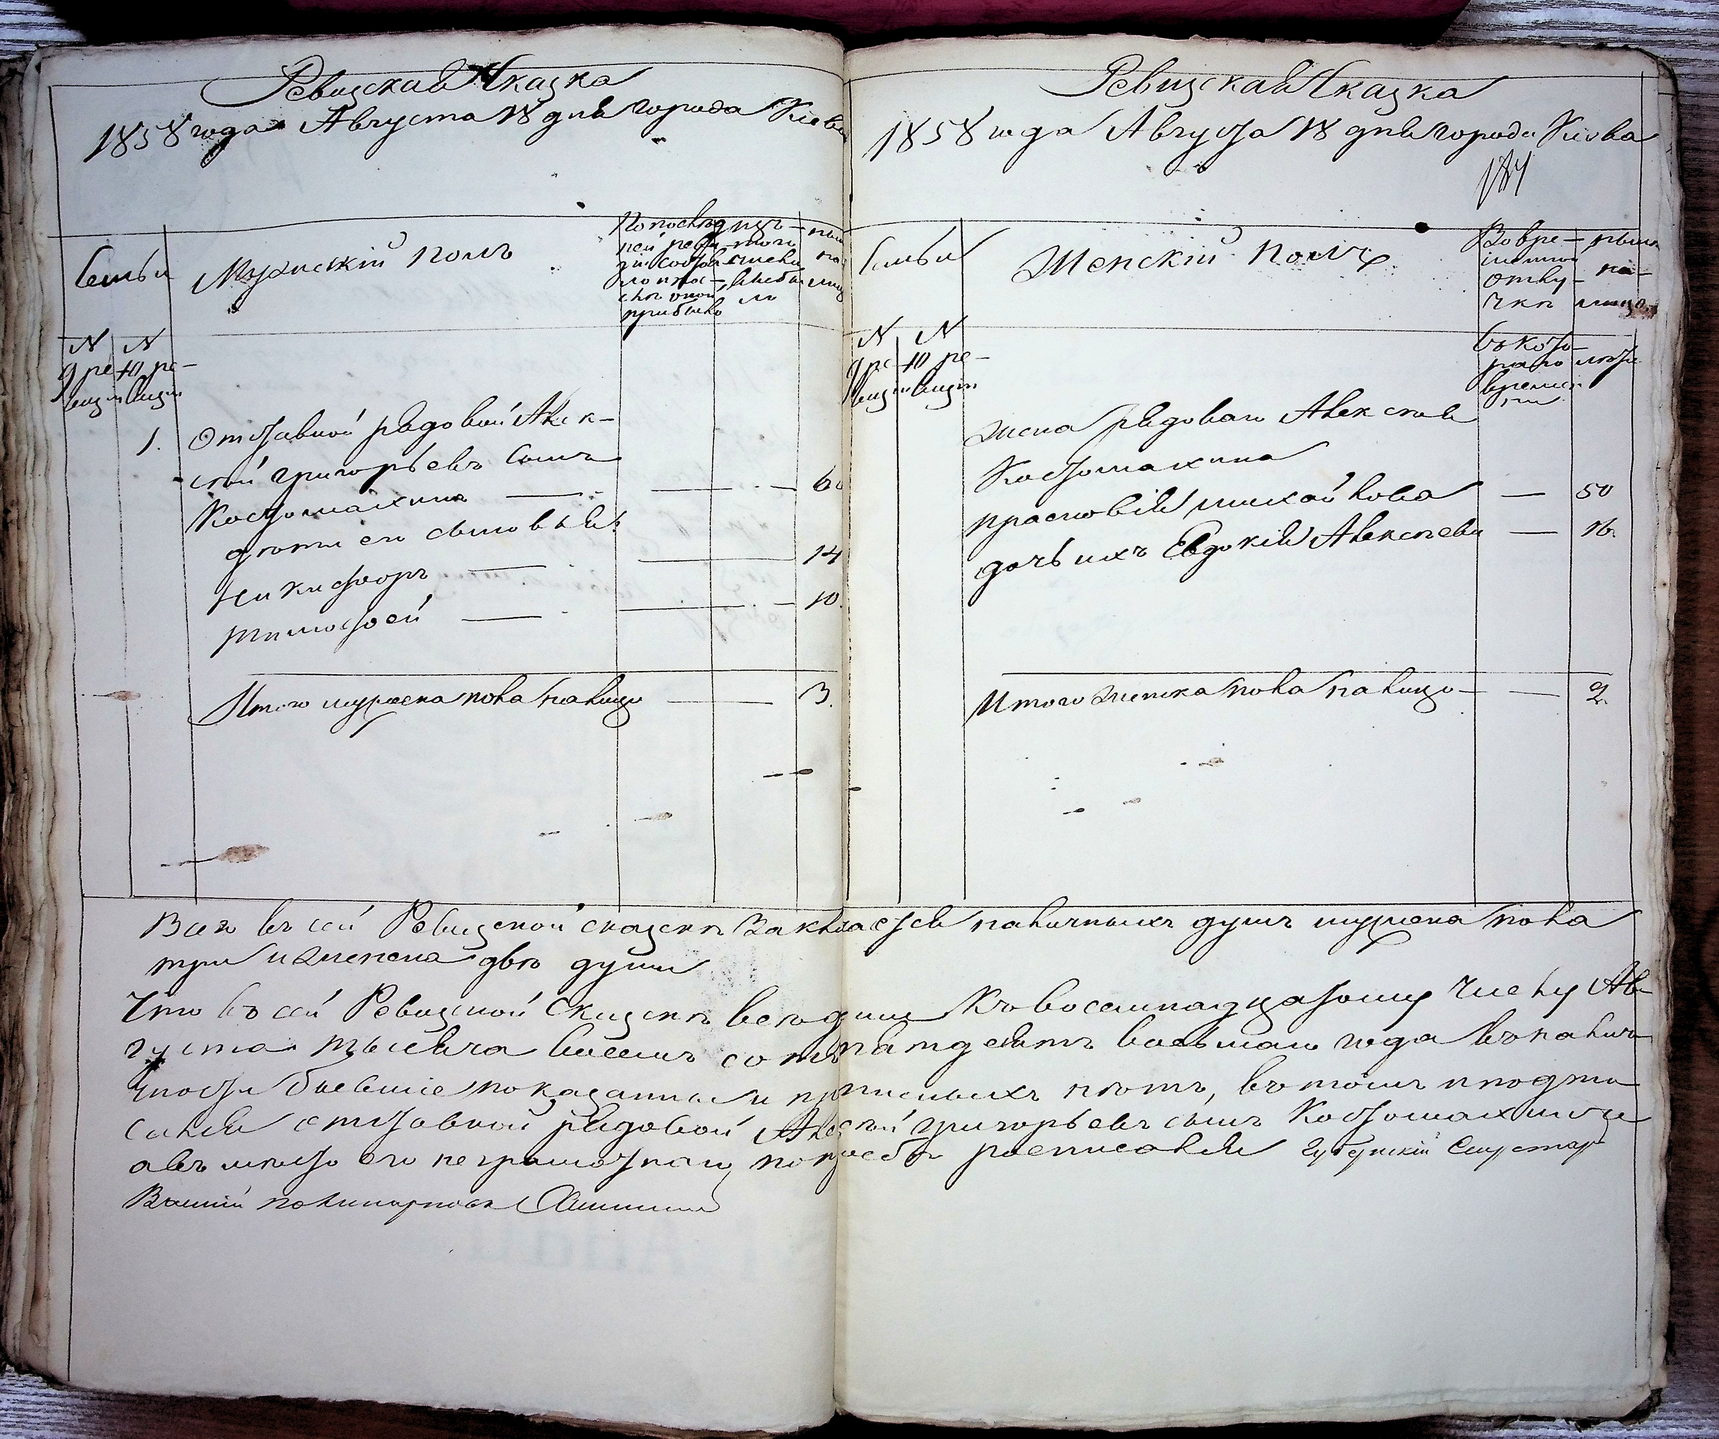 Ревизская Сказка
1858 года Августа 18 дня города Киева
Семьи
Мужеский полъ
По послед-
ней реви-
зіи состоя-
ло и пос-
ле оной
прибыло
изъ
того
числа
выбы-
ло
ныне
на
лицо
N
9 ре-
визіи
N
10 ре-
визіи
1. Отставной рядовой Алек-
сей Григорьевъ сынъ
Костомахинъ — 60
дети его сыновья:
Никифоръ — 14
Тимофей — 10.
Итого мужеска пола налицо — 3.
Ревизская Сказка
1858 года Августа 18 дня города Киева
Семьи
Женскій полъ
Во вре-
менной
отлу-
чке
ныне
на-
лицо
N
9 ре-
визіи
N
10 ре-
визіи
съ кото-
раго
времени
лета
Жена рядоваго Алексея
Костомахина
Прасковія Михайлова — 50
дочь ихъ Евдокія Алексеева — 16.
Итого женска пола налицо — 2.
Всего въ сей Ревизской сказке заключается наличныхъ душъ мужеска пола
три и женска две души
Что въ сей Ревизской Сказке все души къ восемнадцатому числу Ав-
густа тысяча восемь сотъ пятдесятъ восьмаго года въ налич-
ности бывшіе показанны и прописныхъ нетъ, въ томъ и подпи-
сался отставной рядовой Алексей Григорьевъ сынъ Костомахинъ
а вместо его неграмотнаго, по просьбе росписался